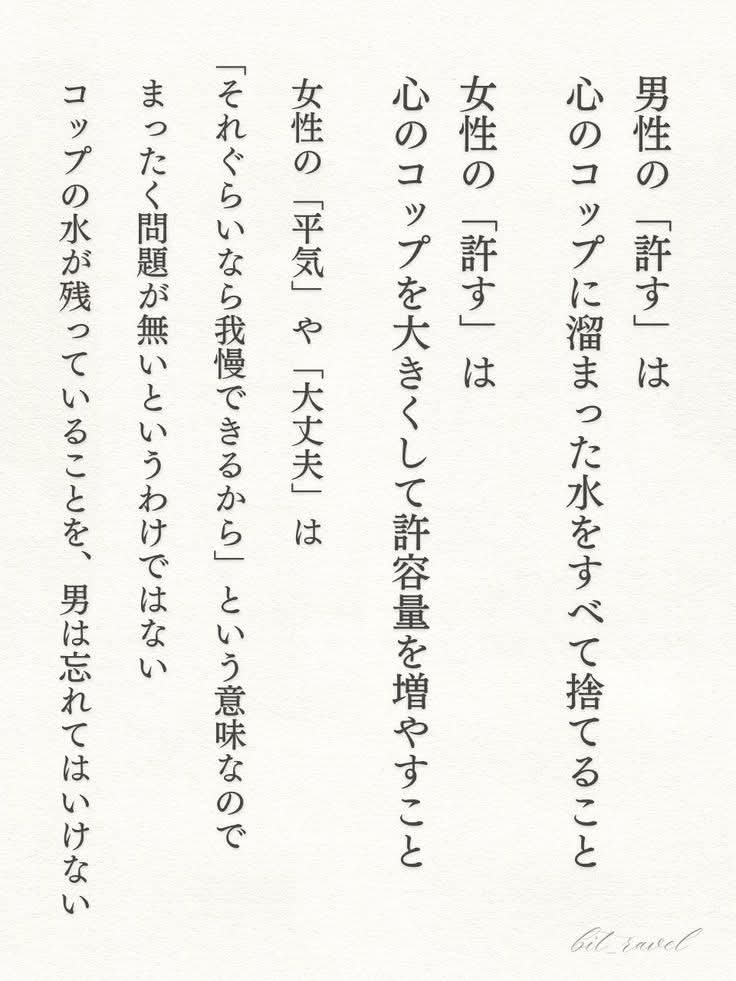 男性の「許す」は
心のコップに溜まった水をすべて捨てること
女性の「許す」は
心のコップを大きくして許容量を増やすこと
女性の「平気」や「大丈夫」は
「それぐらいなら我慢できるから」という意味なので
まったく問題が無いというわけではない
コップの水が残っていることを、男は忘れてはいけない
bit_ravel